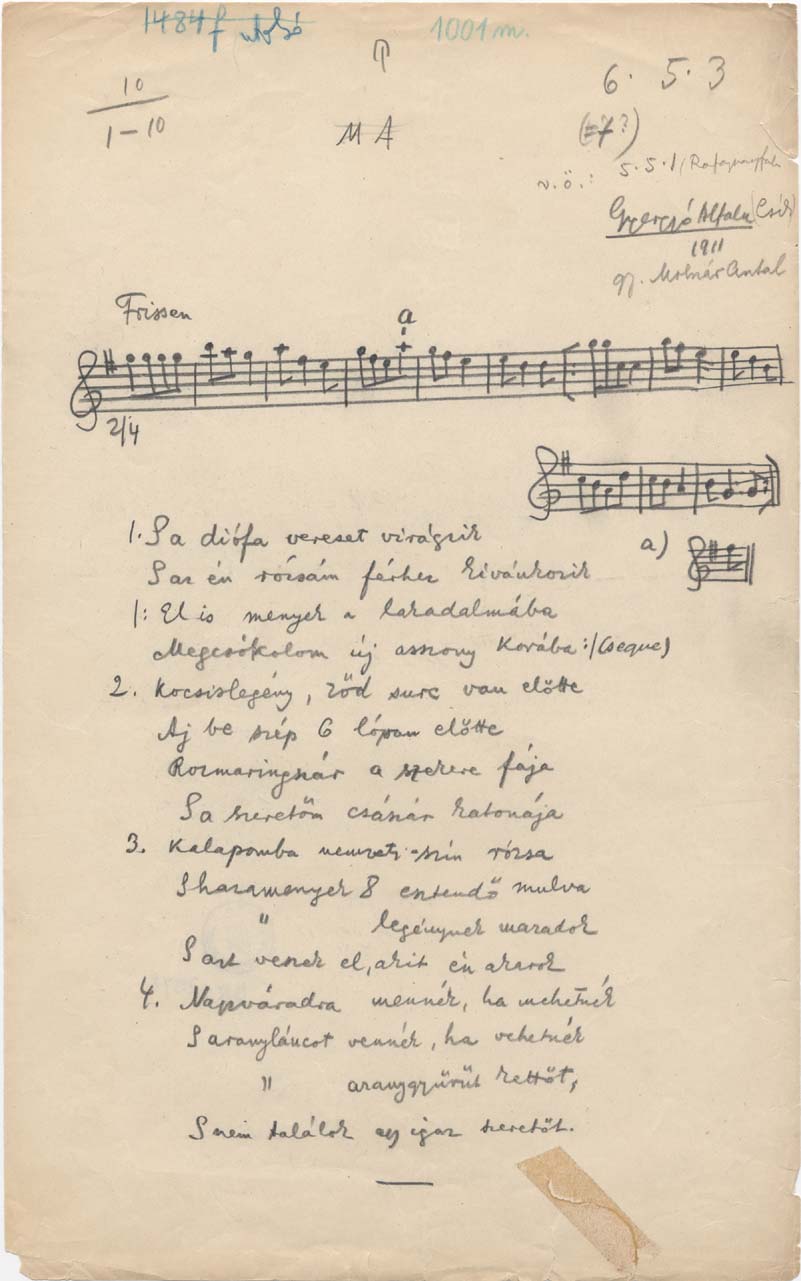 1484f utolsó
1001 m.
10
1-10
MA
6. 5. 3
(=7?)
v.ö.: 5.5.1/
Gyergyó Alfalu (Csík)
1911
gy. Molnár Antal
Frissen
a
2/4
a)
1. S a diófa vereset virágzik
S az én rózsám férhez kivánkozik
/: El is menyek a lakadalmába
Megcsókolom új asszony korába :/ (seque)
2. Kocsislegény, ződ surc van előtte
Aj be szép 6 lóvan előtte
Rozmaringszár a szekere fája
S a szeretőm császár katonája
3. Kalapomba nemzeti-szín rózsa
S hazamenyek 8 esztendő mulva
" legénynek maradok
S azt veszek el, akit én akarok
4. Nagyváradra mennék, ha mehetnék
S aranyláncot vennék, ha vehetnék
" aranygyűrűt kettőt,
S nem találok egy igaz szeretőt.